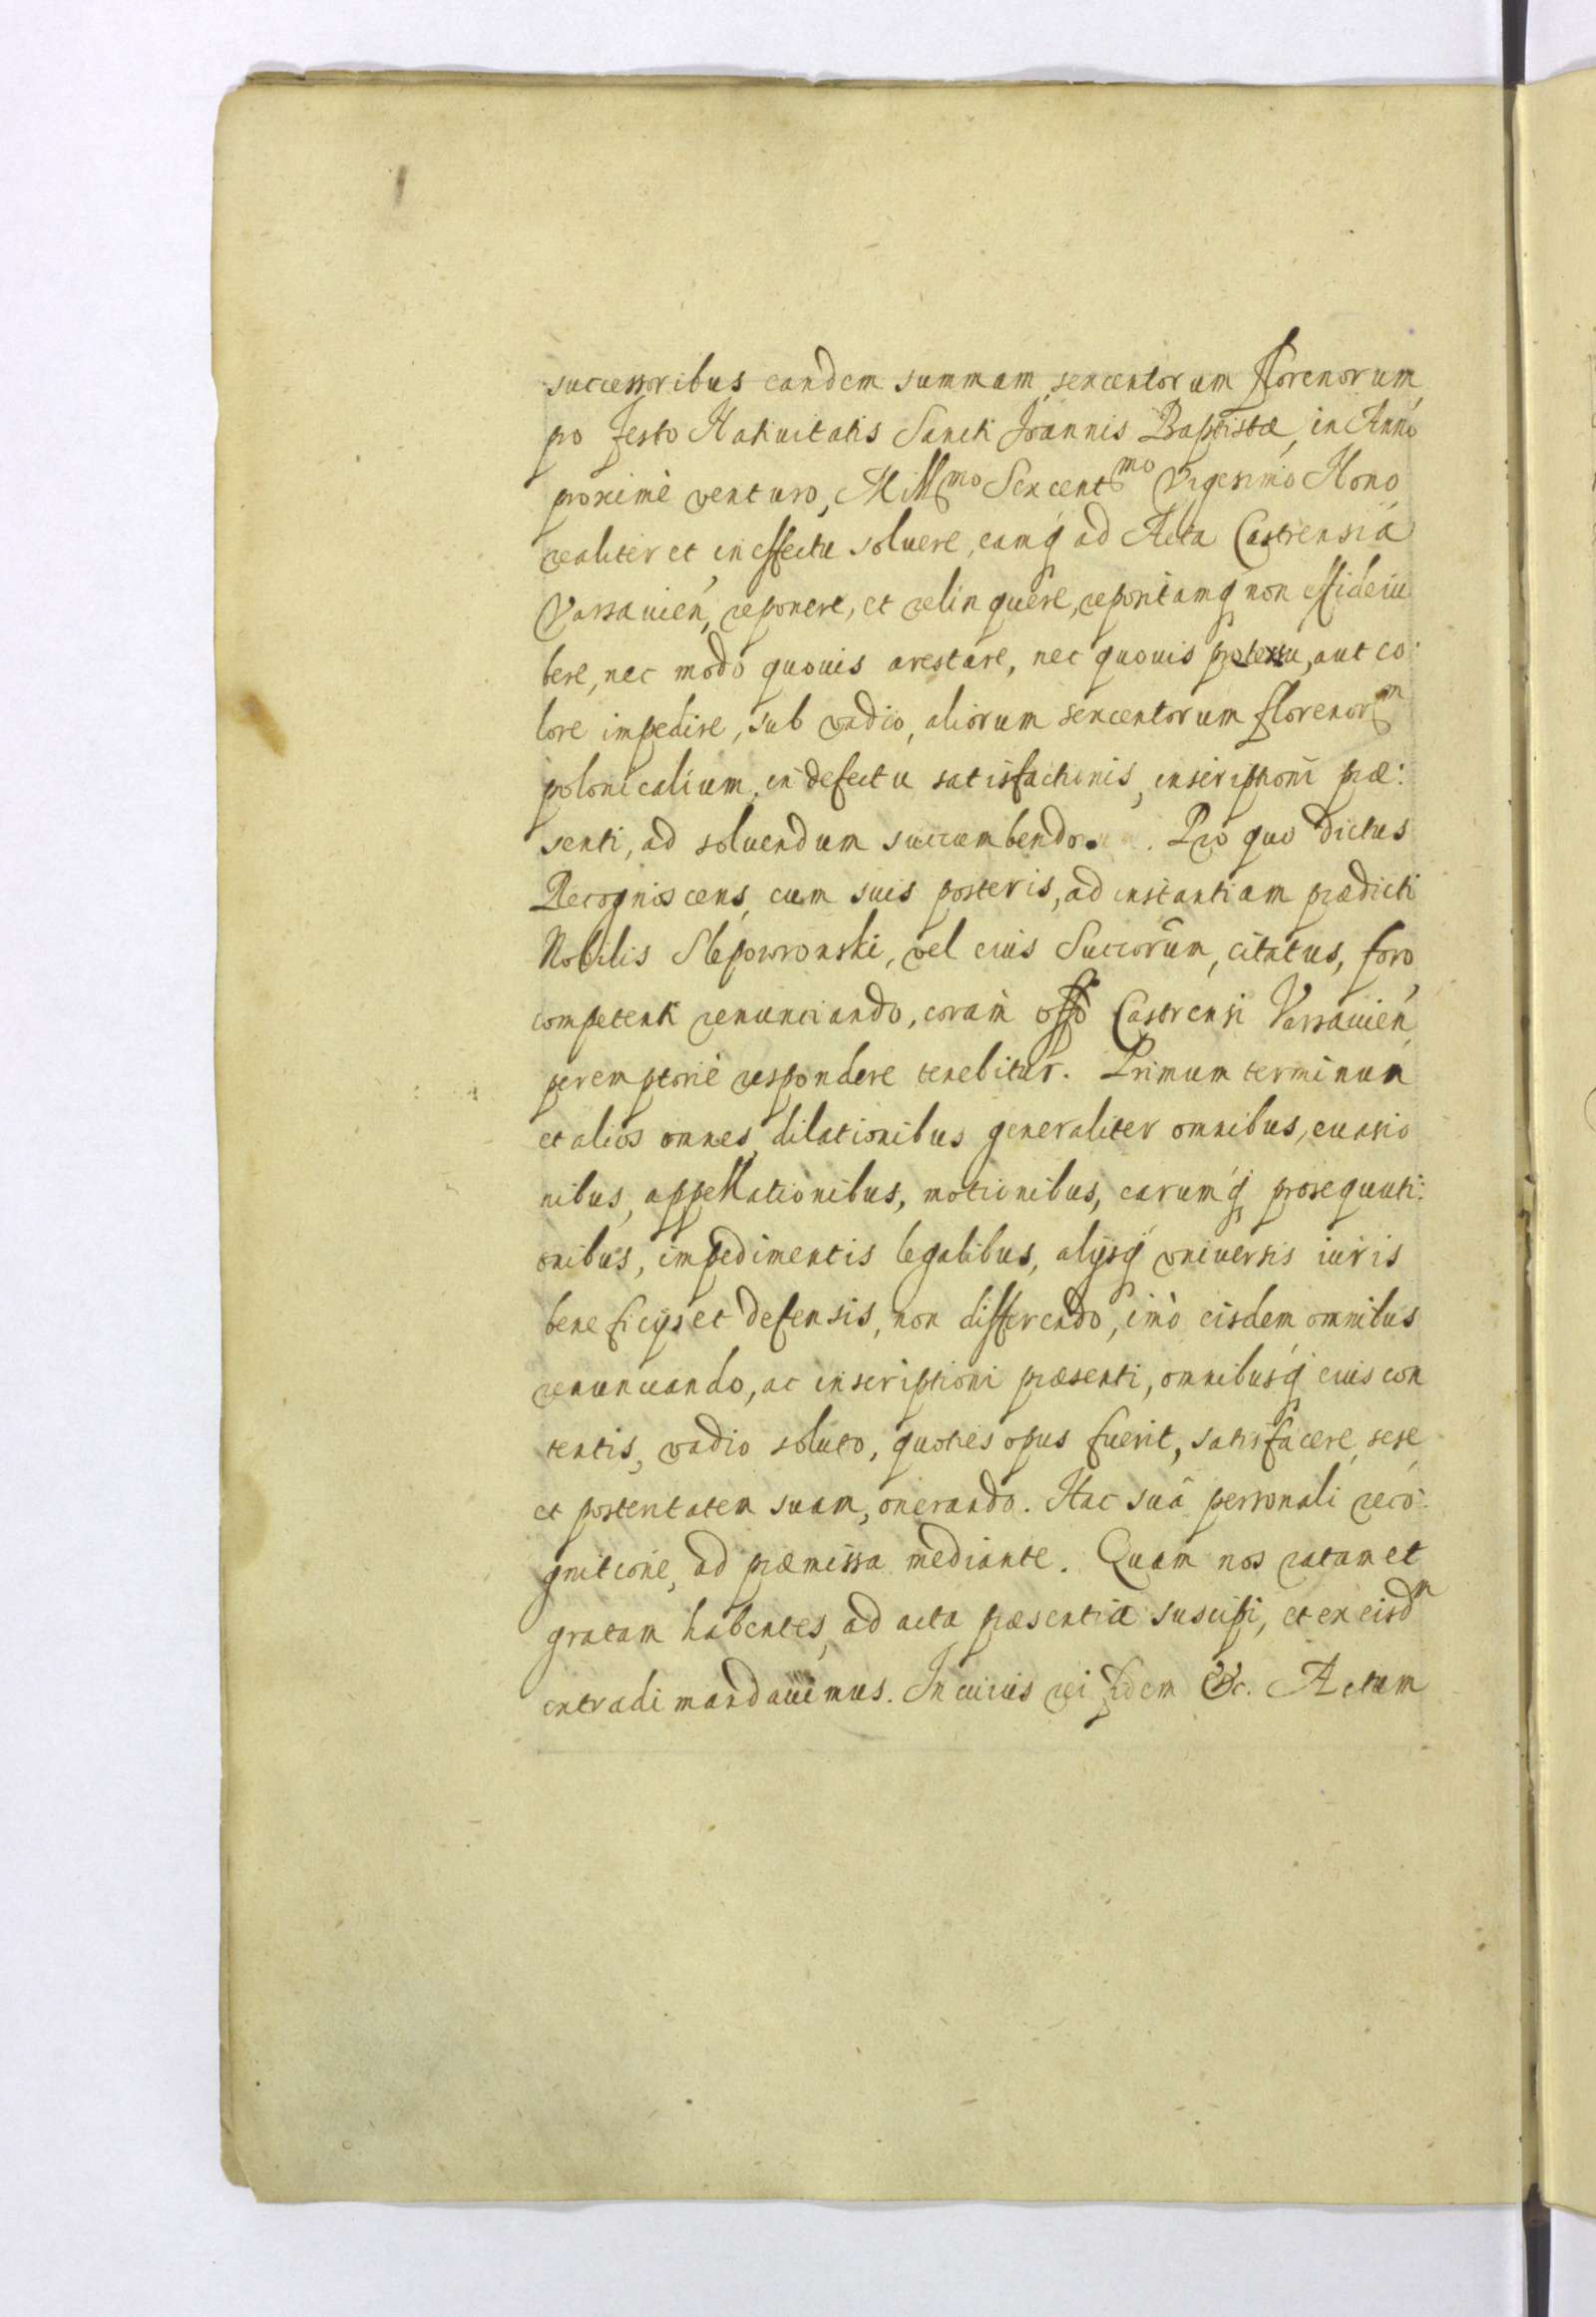 successoribus eandem summam, sexcentorum florenorum,
pro festo Natiuitatis Sancti Joannis Baptistæ, in Anno
proxime venturo, Mill̃mo Sexcentmo Vigesimo Nono,
realiter et in effectu soluere, eamq́ ad Acta Castrensia
Varsauień, reponere, et relinquere, repositamq́ non effideiu
bere, nec modo quouis arestare, nec quouis protextu, aut co:
lore impedire, sub vadio, aliorum sexcentorum florenorm
polonicalium, in defectu satisfactionis, inscriptioni præ:
senti, ad soluendum succumbendo. Pro quo dictus
Recognoscens, cum suis posteris, ad instantiam prædicti
Nobilis Slepowronski, vel eius Succorũm, citatus, foro
competenti renunciando, coram offo Castrensi Varsauień,
peremptorie respondere tenebitur. Primum terminum
et alios omnes, dilationibus generaliter omnibus, euasio
nibus, appellationibus, motionibus, earumq́ prosequuti:
onibus, impedimentis legalibus, alijsq́ vniuersis iuris
beneficijs et defensis, non differendo, imò eisdem omnibus
renunciando, ac inscriptioni præsenti, omnibusq́ eius con
tentis, vadio soluto, quoties opus fuerit, satisfacere, sese
et posteritatem suam, onerando. Hac suâ personali reco:
gnitione, ad præmissa mediante. Quam nos ratam et
gratam habentes, ad acta præsentia suscipi, et ex eisdm
extradi mandauimus. In cuius rei fidem &c. Actum